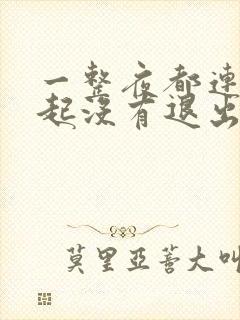 一整夜都连
起没有退出
莫里亚蒂大叫